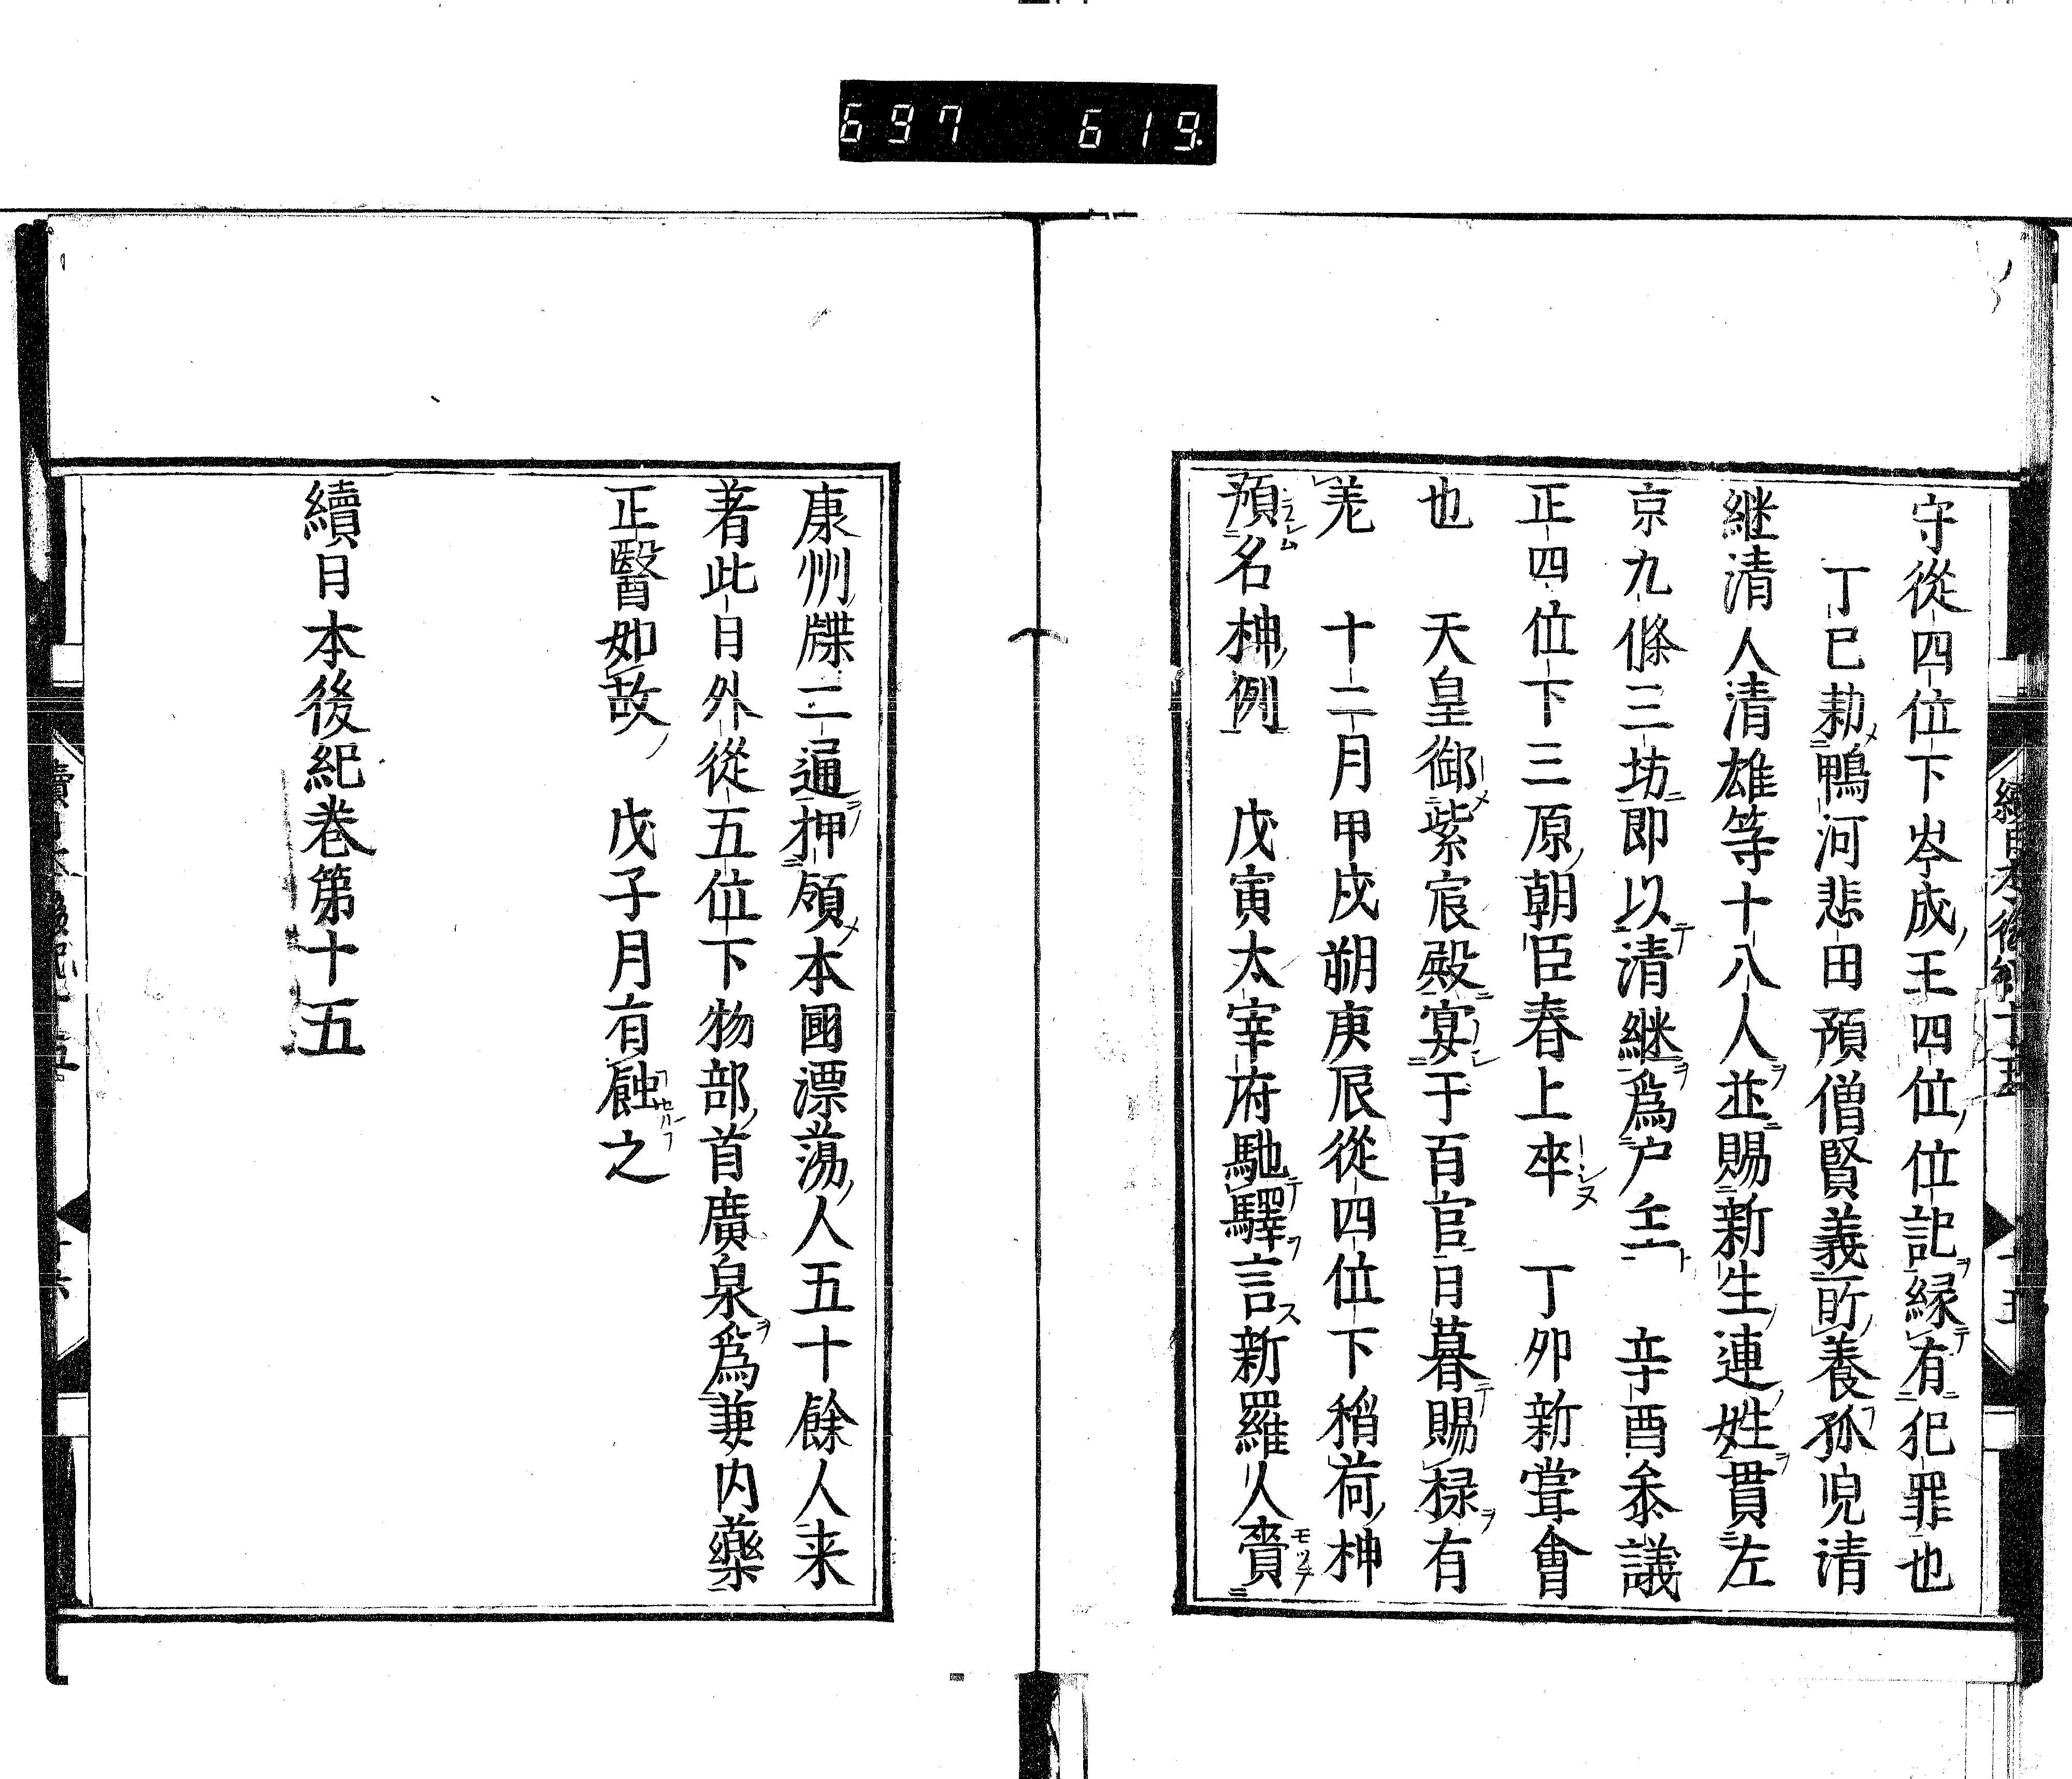 697 619
守從四位下岑成王四位位記縁有犯罪也
丁巳勅鴨河悲田預僧賢義所養孤児清
継清人清雄等十八人並賜新生連姓貫左
京九條三坊即以清継爲户主 辛酉叅議
正四位下三原朝臣春上卒 丁卯新甞會
也 天皇御紫宸殿宴于百官日暮賜禄有
差 十二月甲戌朔庚辰從四位下稲荷神
預名神例 戊寅太宰府馳驛言新羅人賷
康州牒二通押領本國漂蕩人五十餘人来
著此日外從五位下物部首廣泉爲兼内藥
正醫如故 戊子月有蝕之
續日本後紀巻第十五